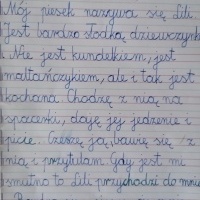 Mój piesek nazywa się Lili.
Jest bardzo słodką dziewczynką
. Nie jest kundelkiem, jest
maltańczykiem, ale i tak jest
kochana. Chodzę z nią na
spacerki, daję jej jedzenie i
picie. Czeszę ją, bawię się z
nią i przytulam. Gdy jest mi
smutno to Lili przychodzi do mnie